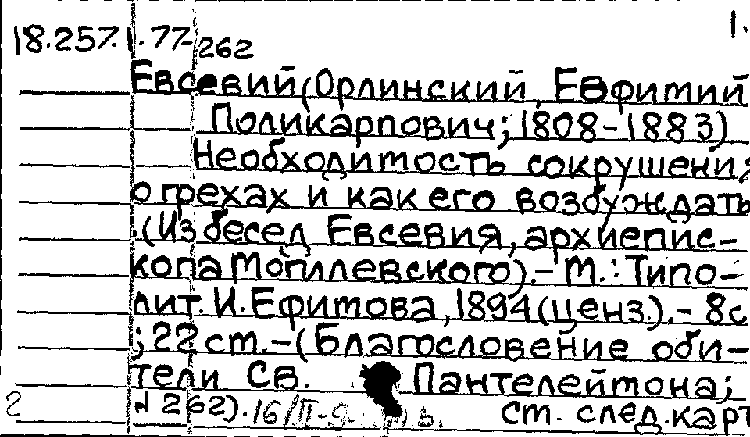 1.
18.257.1.77-262
Евсевий (Орлинский, Евфимий
Поликарпович; 1808-1883)
Необходимость сокрушения
о грехах и как его возбуждать
.(Из бесед Евсевия, архиепис-
копа Могилевского).- М.: Типо-
лит. И. Ефимова, 1894 (ценз.).- 8с
; 22 ст.-(Благословение оби-
тели Св. Пантелеймона;
262). 16/II-9 ст. след. карт